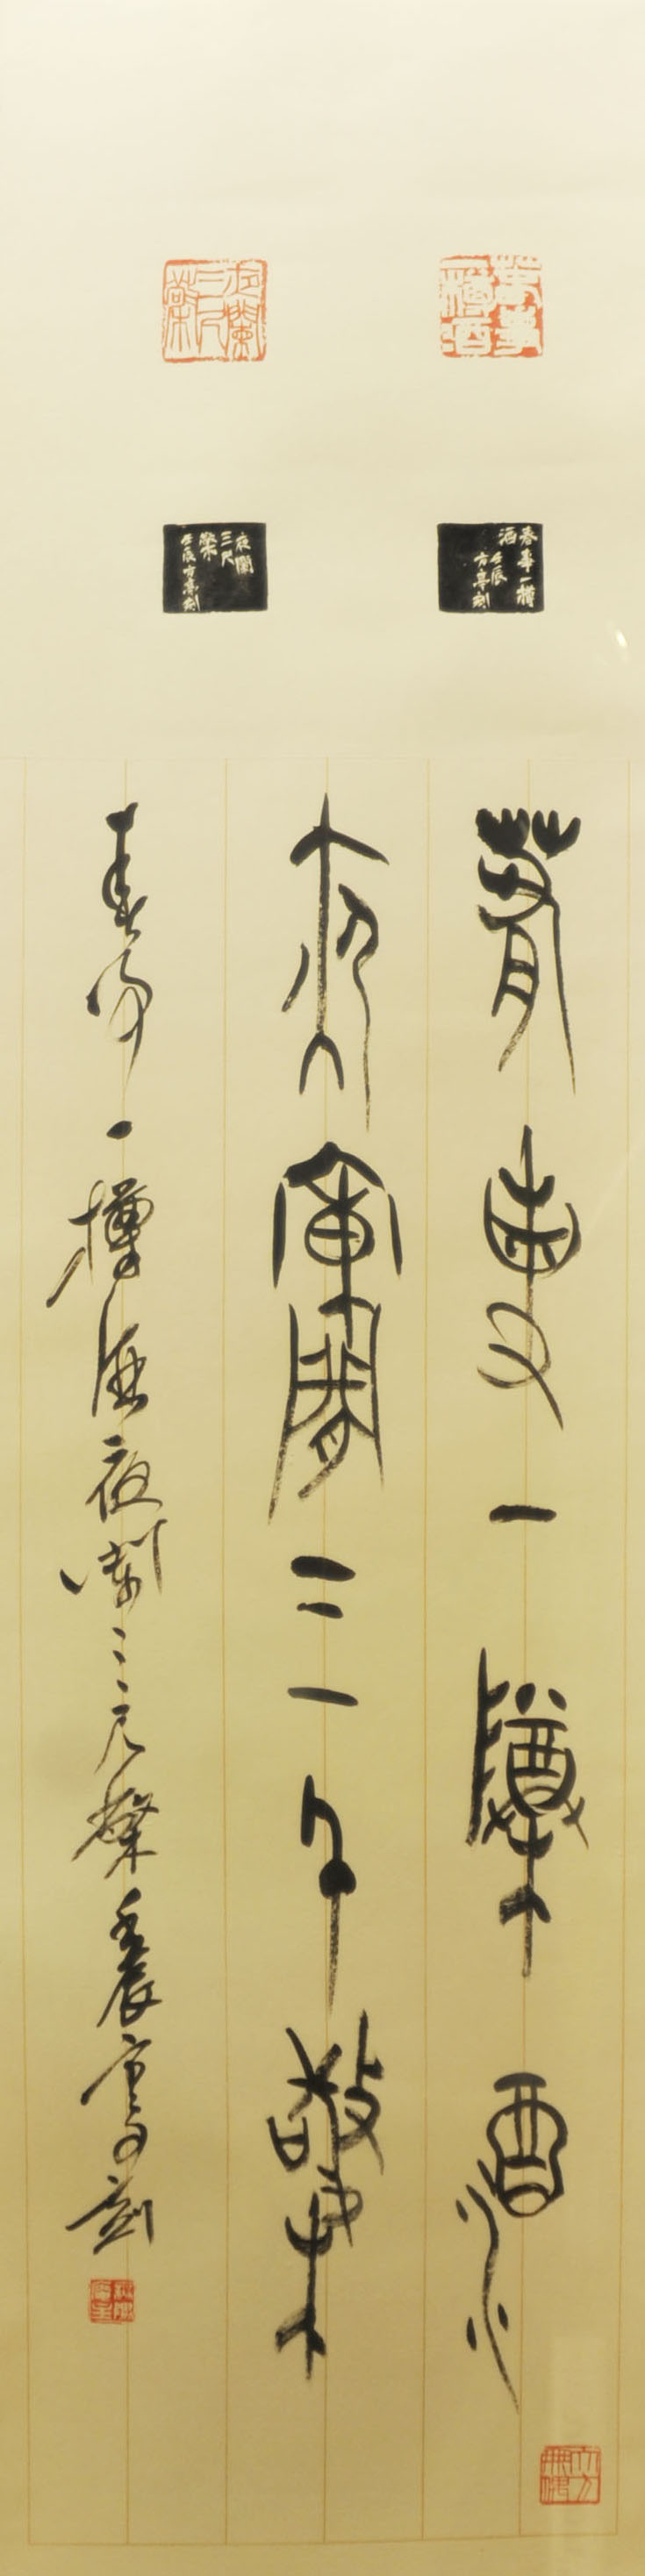 春事
一樽酒
夜闌
三尺
檠
春事一樽
酒
壬辰
方亭刻
夜闌
三尺
檠
壬辰方亭刻
春事一樽酒
夜闌三尺檠
春事一樽酒夜闌三尺檠壬辰刻
大方
無隅